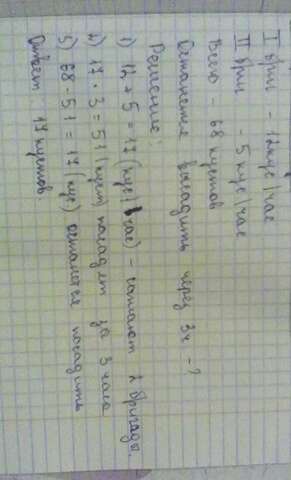 I бриг – 12 кус/час
II бриг – 5 кус/час
Всего – 68 кустов
Останется высадить через 3ч – ?
Решение:
1) 12 + 5 = 17 (кус/час) – сажают 2 бригады.
2) 17 · 3 = 51 (куст) посадят за 3 часа
3) 68 - 51 = 17 (кус) останется посадить
Ответ: 17 кустов